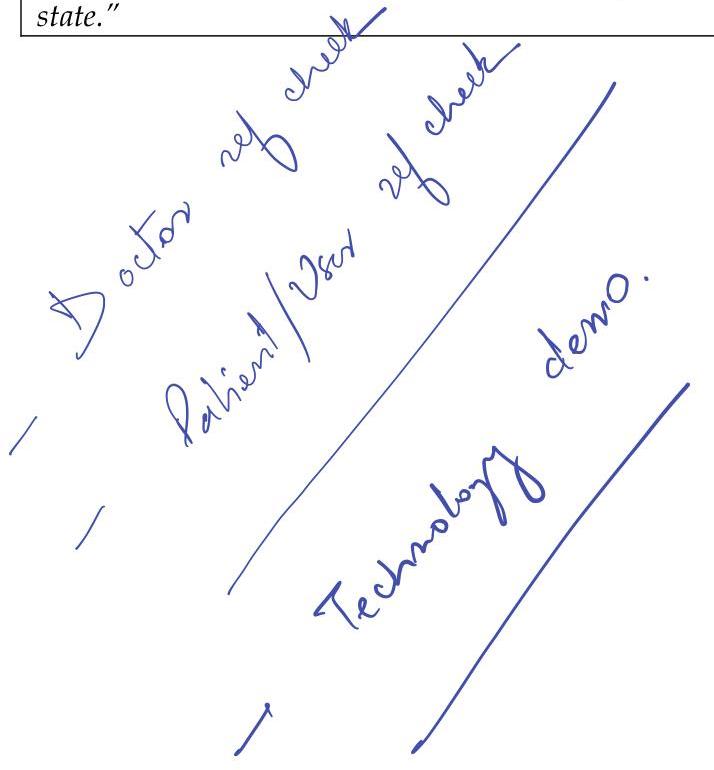 state.”
- Doctor ref check
- Patient/User ref check
- Technology demo.